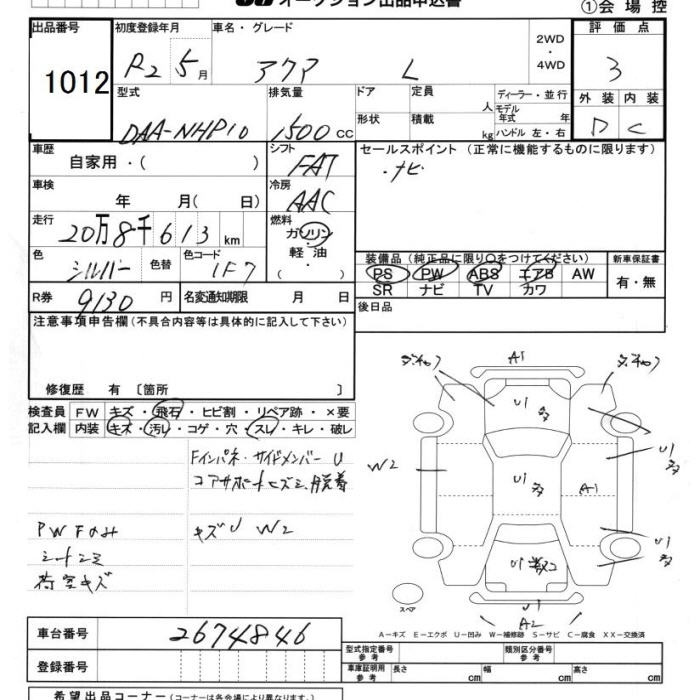 オークション出品申込書
①会場控
出品番号 初度登録年月 車名・グレード 2WD・4WD 評価点
1012 R2 5月 アクア L 3
型式 排気量 ドア 定員 人 ディーラー・並行 外装 内装
DAA-NHP10 1500cc 形状 積載 kg モデル年式 年 ハンドル 左・右 D C
車歴 シフト セールスポイント (正常に機能するものに限ります)
自家用・( ) FAT ・ナビ
車検 冷房
年 月( 日) AAC
走行 燃料
20万8千613km ガソリン・軽油・( )
色 色替 色コード 装備品(純正品に限り○をつけてください) 新車保証書
シルバー 1F7 PS PW ABS エアB AW 有・無
SR ナビ TV カワ
R券 9130円 名変通知期限 月 日 後日品
注意事項申告欄(不具合内容等は具体的に記入して下さい)
修復歴 有 〔箇所 〕
検査員記入欄 FW キズ・飛石・ヒビ割・リペア跡・×要
内装 キズ・汚れ・コゲ・穴・スレ・キレ・破レ
Fインパネ・サイドメンバー U
コアサポートヒズミ、脱着
PWFのみ キズU W2
シートシミ
荷室キズ
A1
U1 多
W2
U1 多
U1 多
A1
U1 多
U1
A2
スペア
A-キズ E-エクボ U-凹み W-補修跡 S-サビ C-腐食 XX-交換済
車台番号 2674846
型式指定番号 参考 類別区分番号 参考
登録番号
車庫証明用 参考 長さ cm 幅 cm 高さ cm
希望出品コーナー(コーナーは各会場により異なります。)